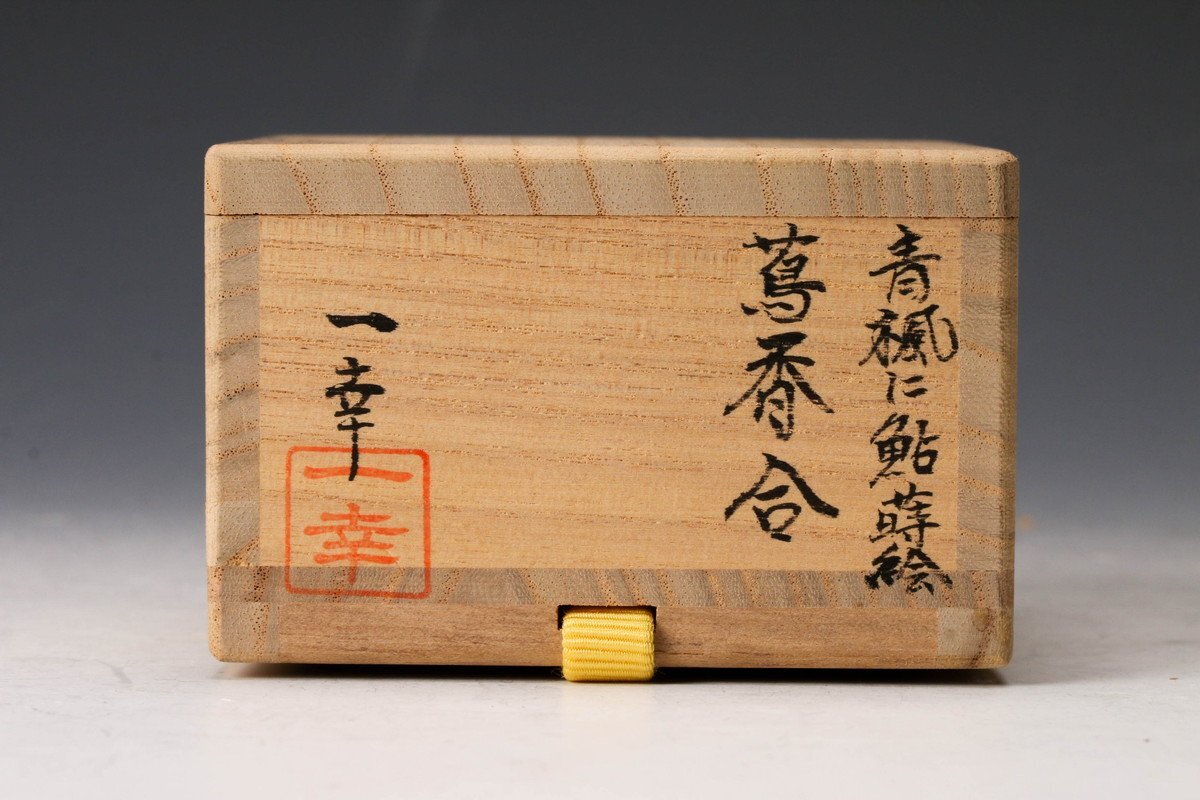 青楓に鮎蒔絵
蔦香合
一幸
一幸